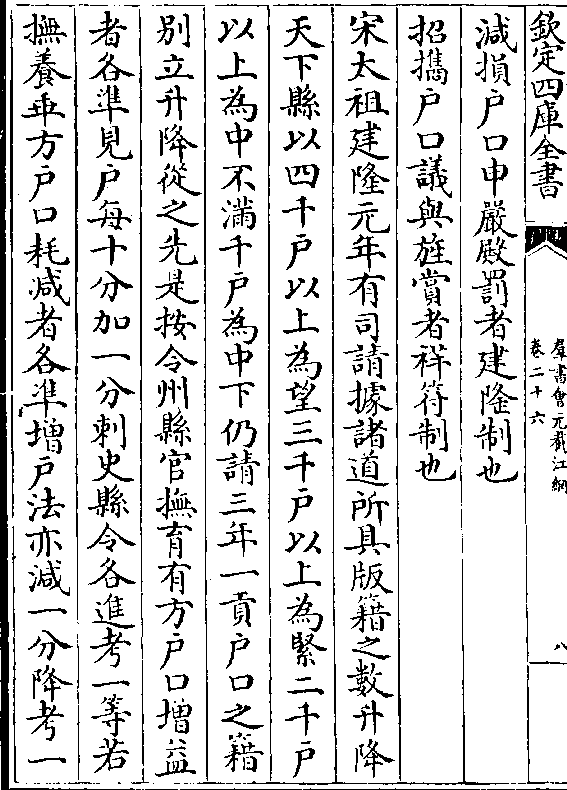 欽定四庫全書
羣書會元截江網
卷二十六
八
減損户口申嚴殿罰者建隆制也
招擕户口議與旌賞者祥符制也
宋太祖建隆元年有司請據諸道所具版籍之數升降
天下縣以四千户以上為望三千户以上為緊二千户
以上為中不滿千户為中下仍請三年一貢户口之籍
別立升降從之先是按令州縣官撫育有方户口增益
者各準見户每十分加一分刺史縣令各進考一等若
撫養乖方户口耗減者各準增户法亦減一分降考一